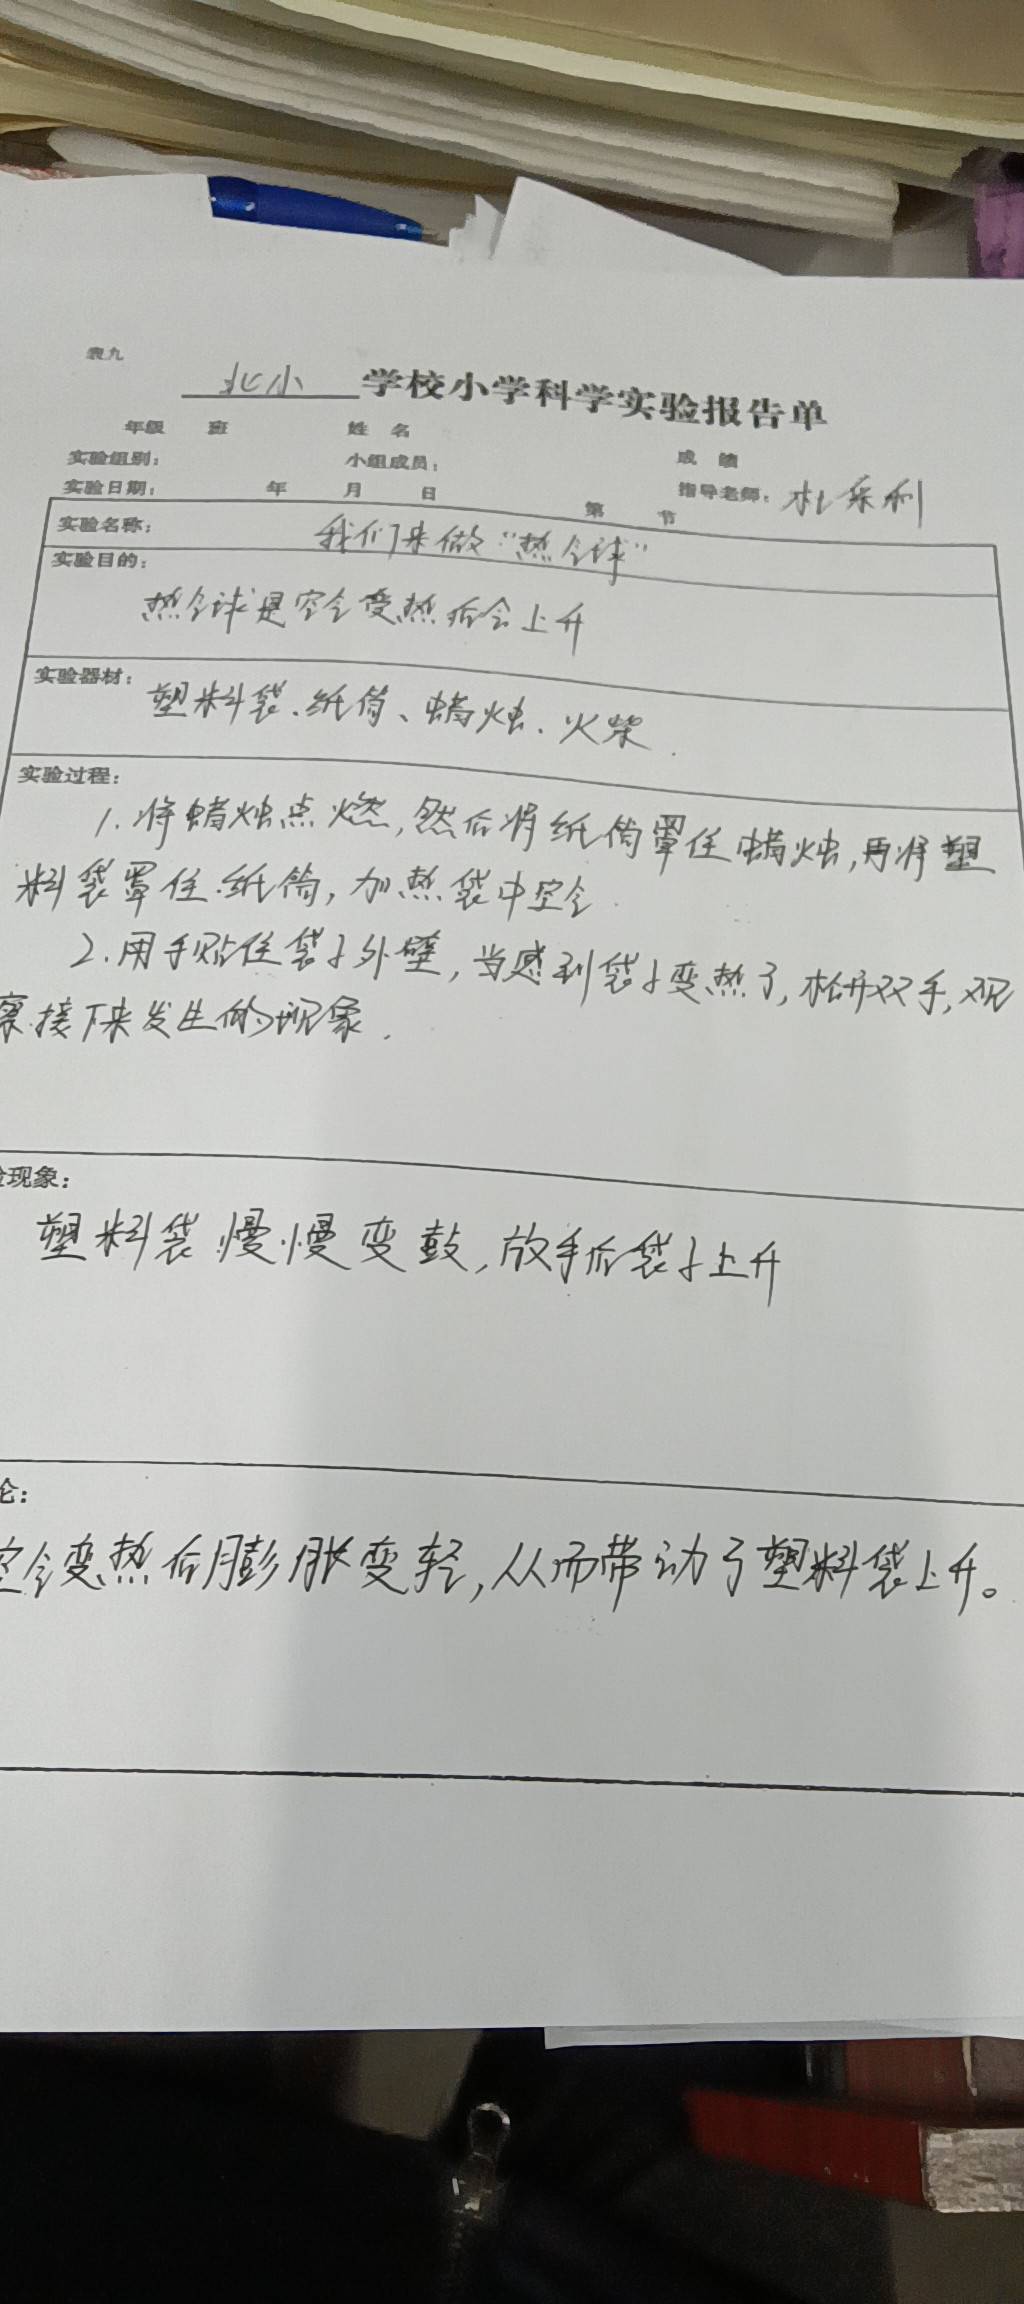 表九
北小 学校小学科学实验报告单
年级 班 姓 名
实验组别： 小组成员： 成 绩
实验日期： 年 月 日 第 节 指导老师：
实验名称： 我们来做“热气球”
实验目的：
热气球是空气受热后会上升
实验器材：
塑料袋、纸筒、蜡烛、火柴
实验过程：
1.将蜡烛点燃,然后将纸筒罩住蜡烛,再将塑
料袋罩住纸筒,加热袋中空气.
2.用手贴住袋子外壁,当感到袋子变热了,松开双手,观
察接下来发生的现象.
验现象：
塑料袋慢慢变鼓,放手后袋子上升
论：
空气变热后膨胀变轻,从而带动了塑料袋上升。